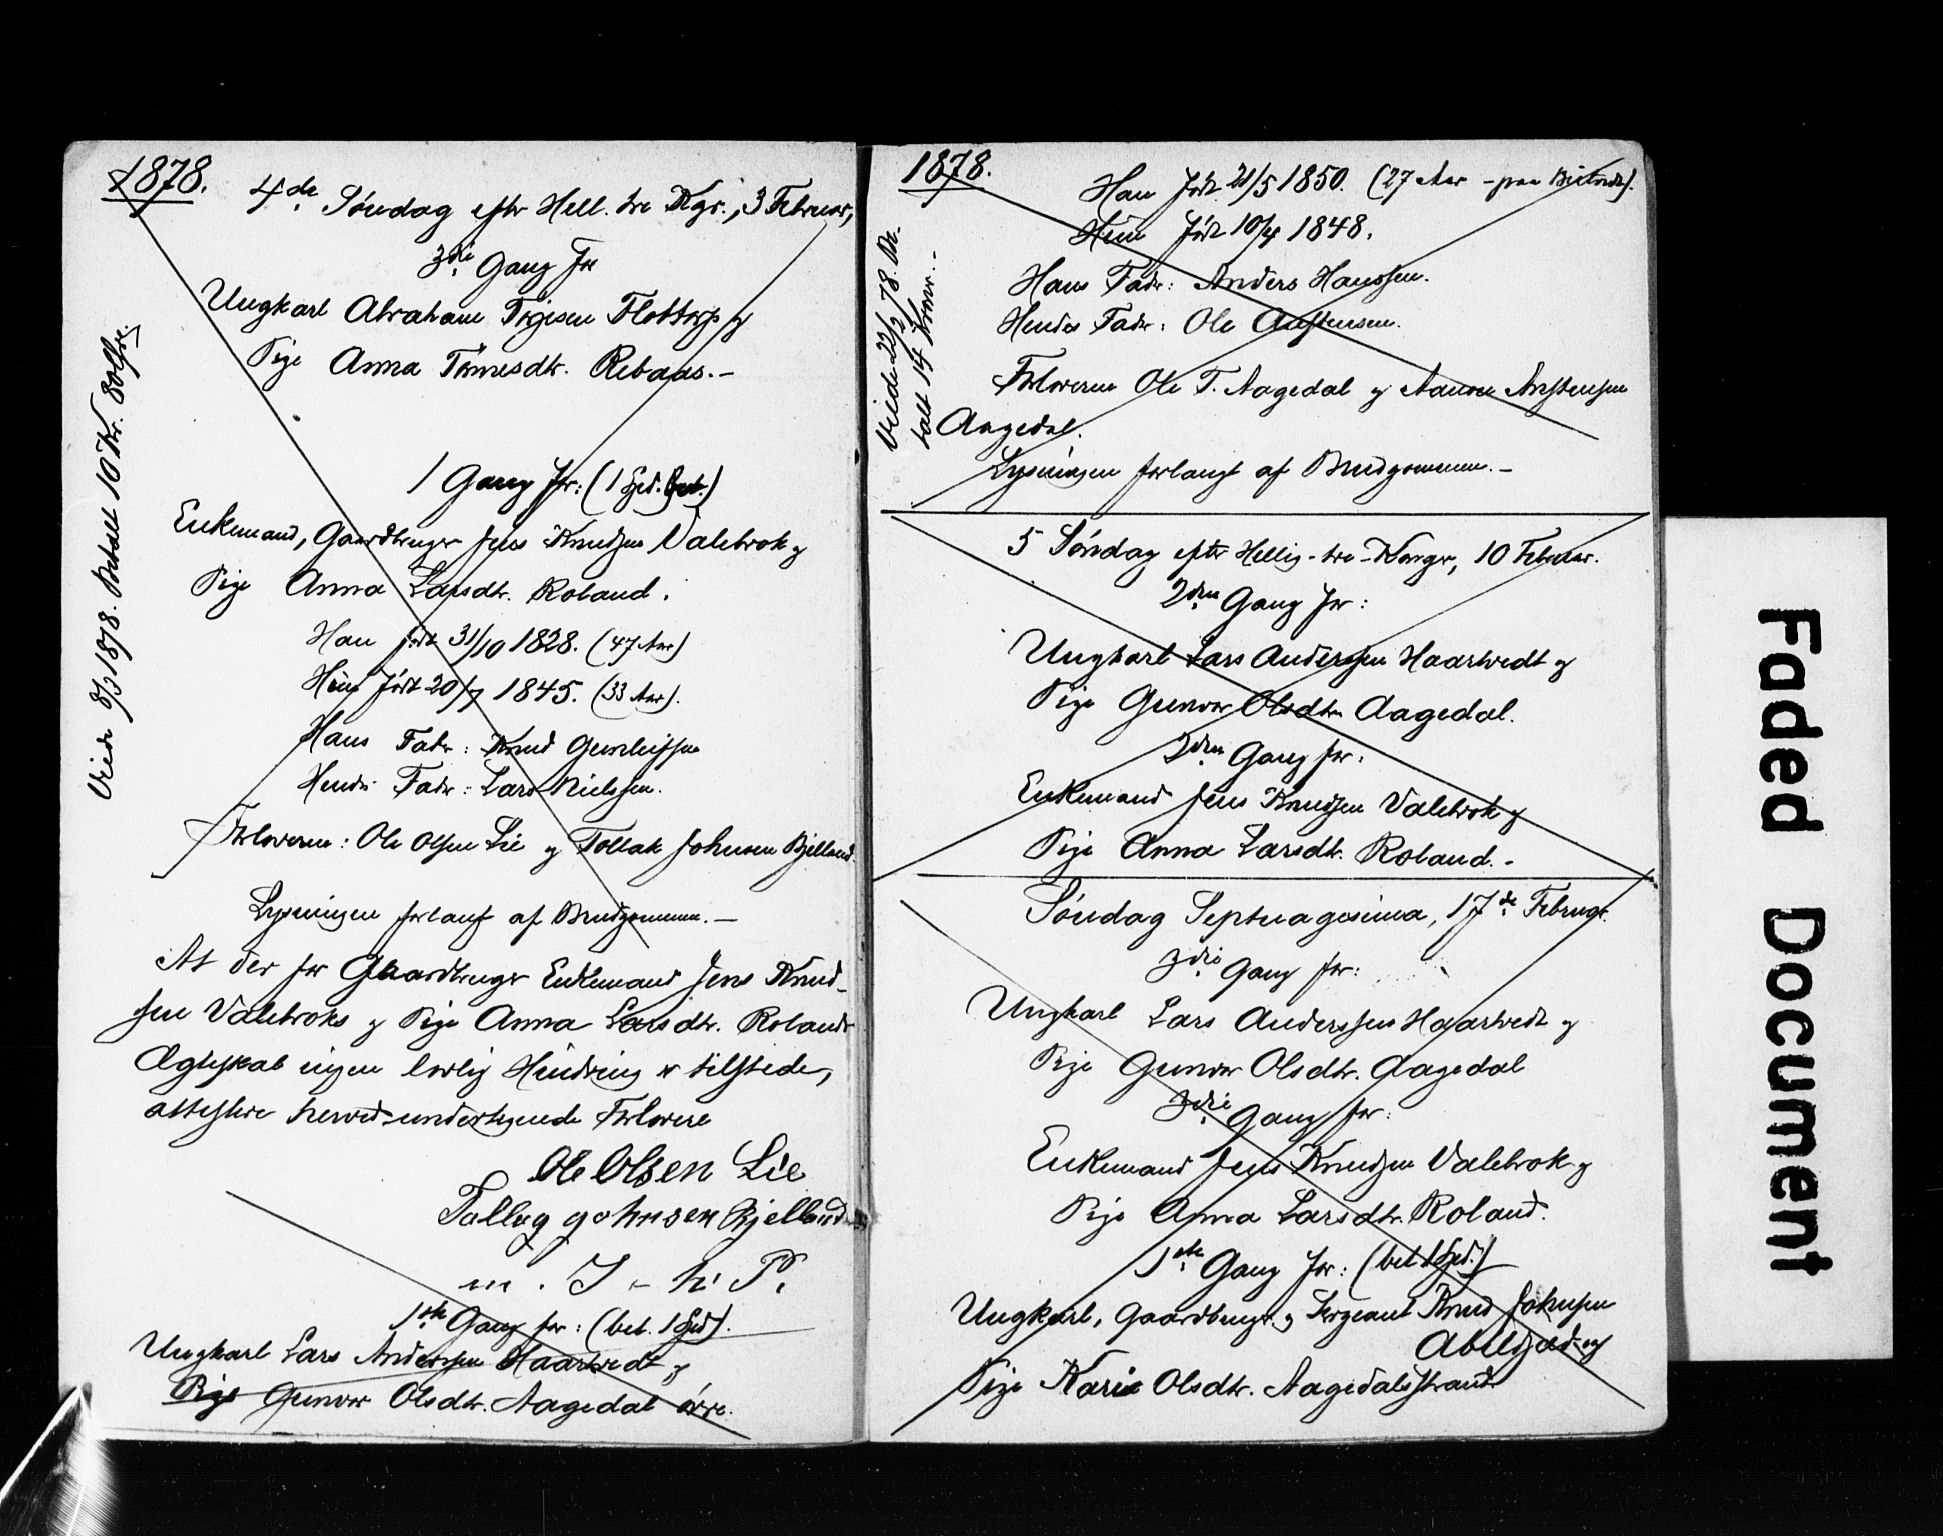 1878.
4de Søndag efter Hell. tre Kgr., 3 Februar,
3die Gang for
Ungkarl Abraham Tørjesen Flottorp og
Pige Anna Tømesdtr. Rebaas. –
1 Gang for: (1 Spd. bet.)
Enkemand, Gaardbruger Jens Knudsen Valebrok og
Pige Anna Larsdtr. Roland.
Han født 31/10 1828. (47 Aar)
Hun født 20/7 1845. (33 Aar).
Hans Fader: Knud Gunleifsen
Hendes Fader: Lars Nielssen.
Forloverne: Ole Olsen Lie og Tollak Johnsen Bjelland.
Lysningen forlangt af Brudgommen. –
At der for Gaardbruger Enkemand Jens Knud-
sen Valebroks og Pige Anna Larsdtr. Rolands
Ægteskab ingen lovlig Hindring er tilstede,
attestere herved undertegnede Forlovere
Ole Olsen Lie
Tallag Johnsen Bjelland
m. I – h. P.
1ste Gang for: (bet. 1 Spd).
Ungkarl Lars Anderssen Haartvedt og
Pige Gunvor Olsdtr. Aagedal øvre.
Viede 8/3 1878. Betalt 10 Kr. 80
1878.
Han født 21/5 1850. (27 Aar – paa
Hun født 10/4 1848.
Hans Fader: Anders Hanssen.
Hendes Fader: Ole Austensen.
Forloverne Ole T. Aagedal og Aanon Austensen
Aagedal.
Lysningen forlangt af Brudgommen. –
Viede 22/3 78. Be-
talt 14 Kroner. –
5 Søndag efter Hellig-tre-Konger, 10 Februar.
2den Gang for:
Ungkarl Lars Anderssen Haartvedt og
Pige Gunvor Olsdtr. Aagedal.
2den Gang for:
Enkemand Jens Knudsen Valebrok og
Pige Anna Larsdtr. Roland. –
Søndag Septuagesima, 17de Februar.
3die Gang for:
Ungkarl Lars Anderssen Haartvedt og
Pige Gunvor Olsdtr. Aagedal
3die Gang for:
Enkemand Jens Knudsen Valebrok og
Pige Anna Larsdtr. Roland.
1ste Gang for: (bet 1 Spd.)
Ungkarl, Gaardbruger og Sergeant Knud Johnsen
Abelsæd og
Pige Karie Olsdtr. Aagedalsstrand
Faded Document